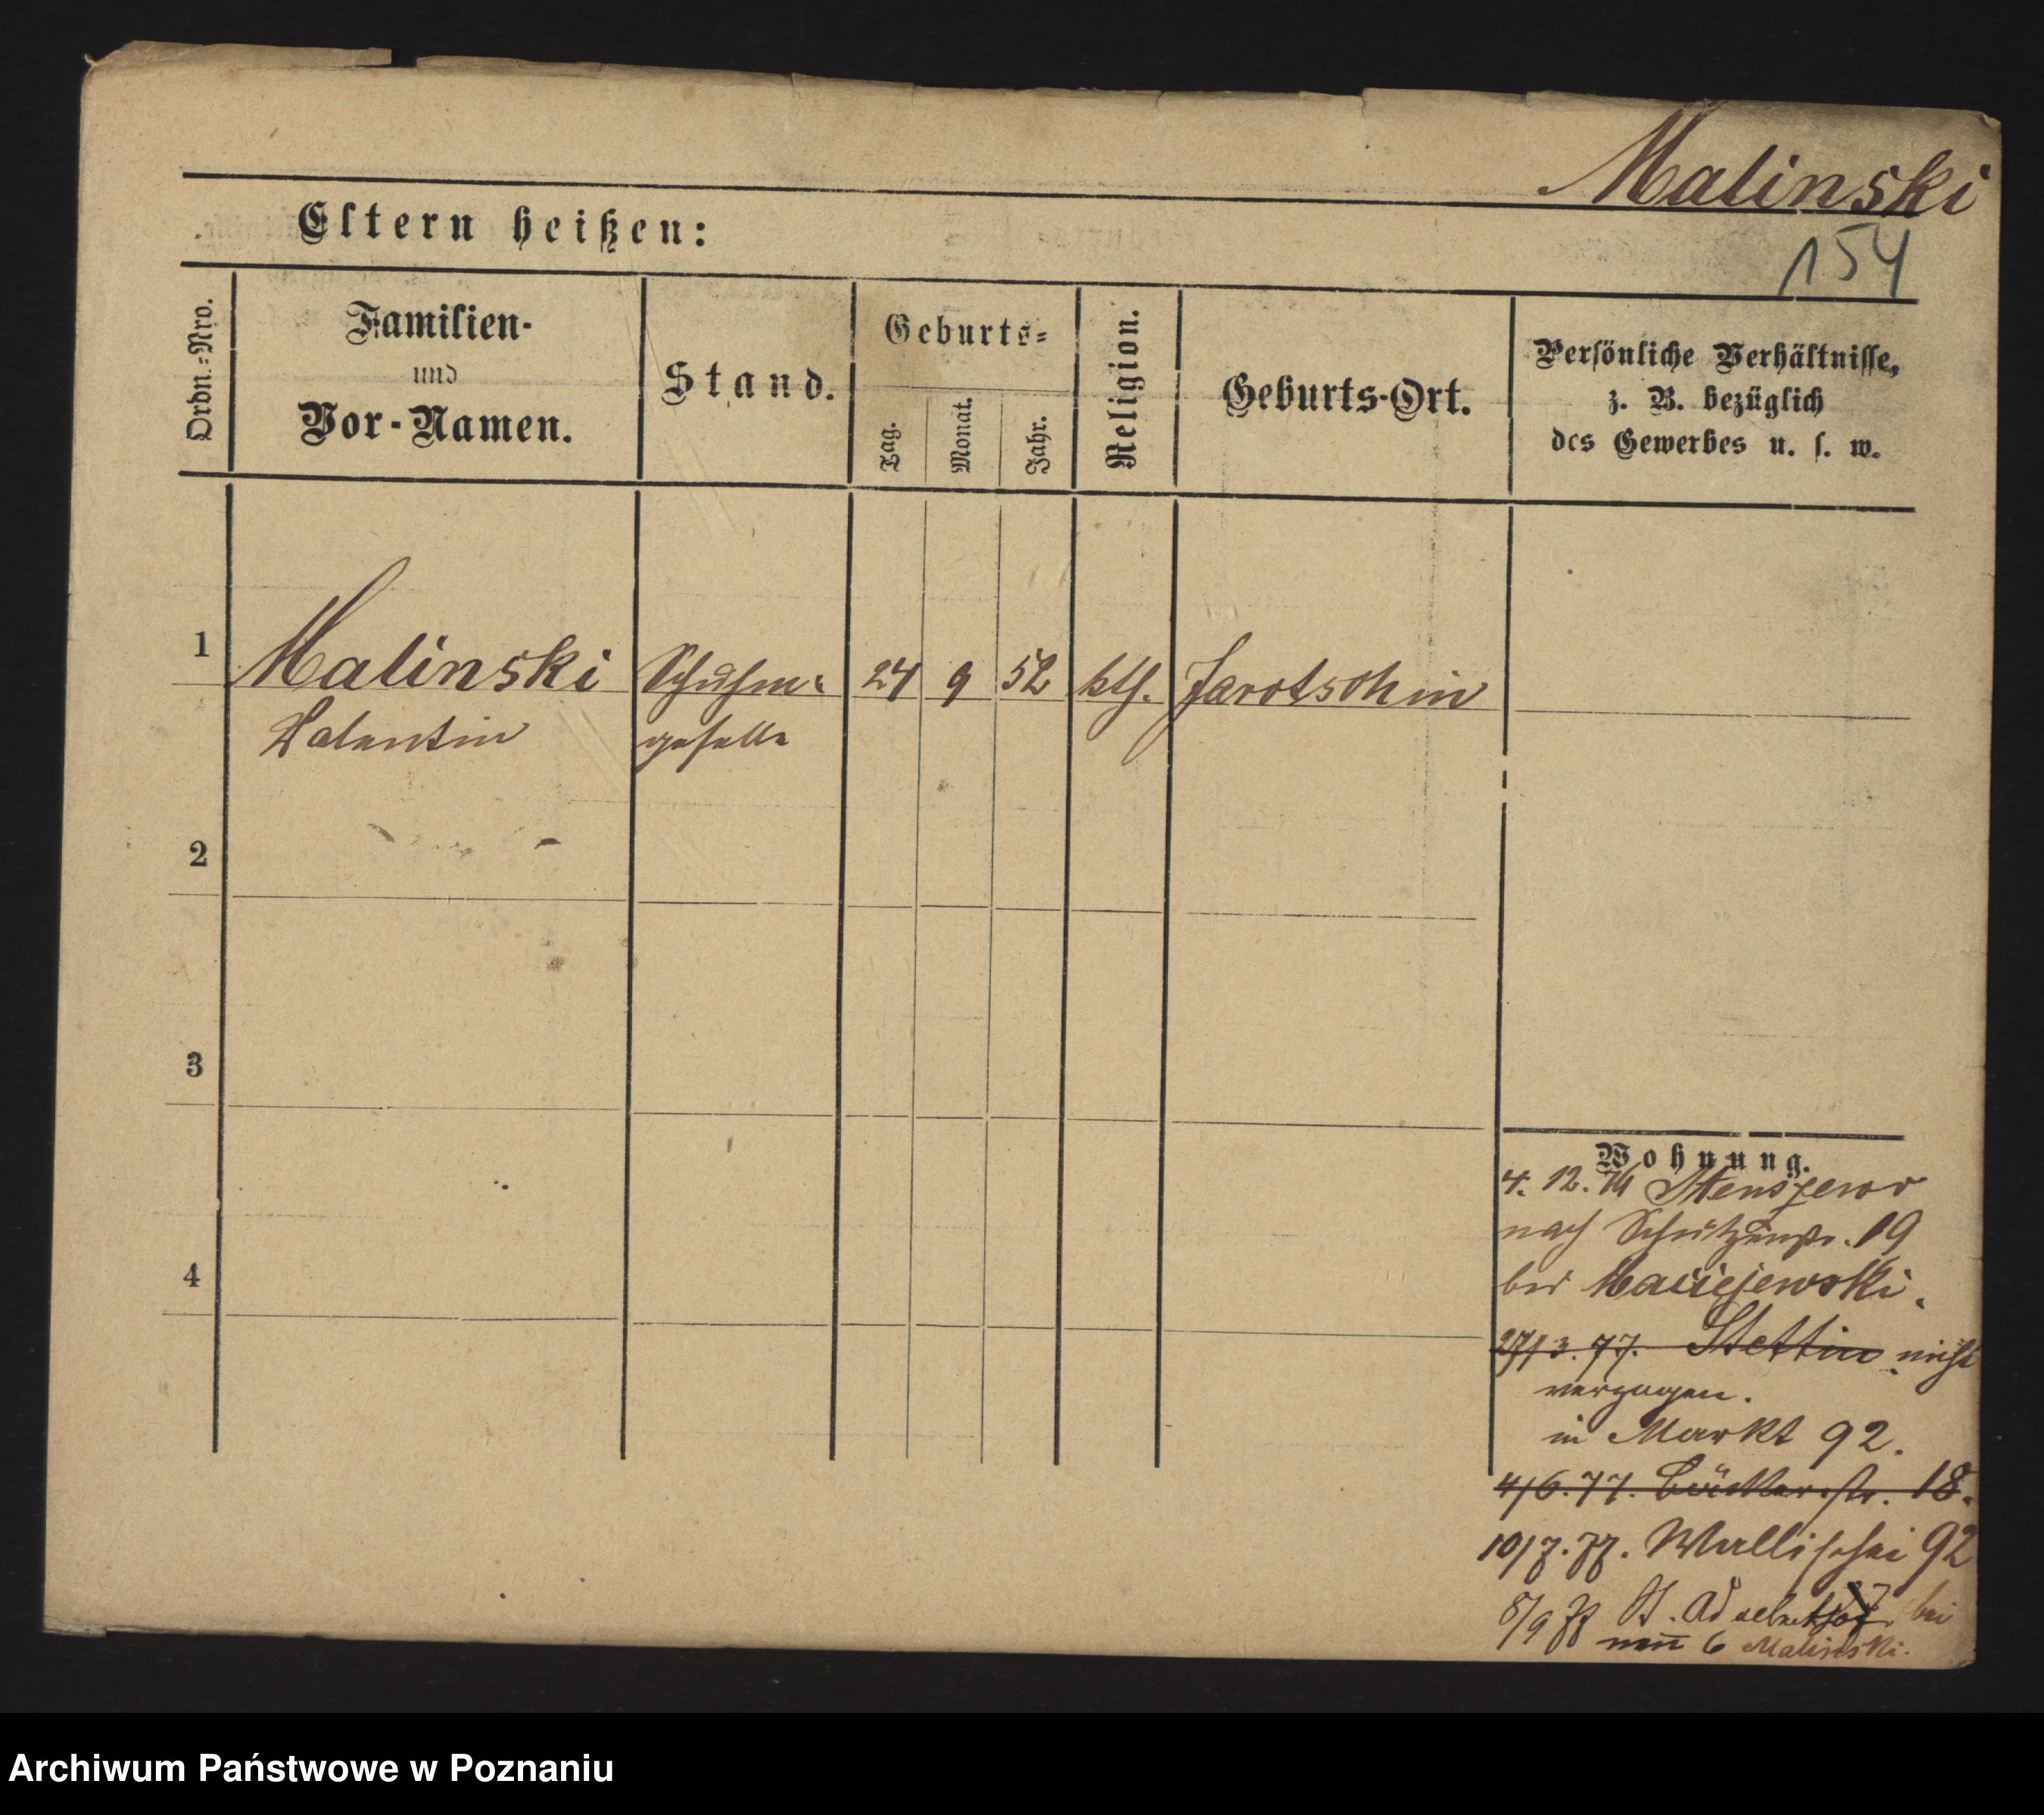 Malinski
154
Eltern heißen:
Ordn.-Nro.
Familien-
und
Vor-Namen.
Stand.
Geburts-
Tag.
Monat.
Jahr.
Religion.
Geburts-Ort.
Persönliche Verhältnisse,
z. B. bezüglich
des Gewerbes u. s. w.
1
Malinski
Schuhm-
24
9
52
kth.
Jarotschin
Valentin
geselle
2
3
4
Wohnung.
4. 12. 76 Stenszewo
nach Schützenstr. 19
bei Maciejewski.
27/3. 77. Stettin nicht
verzogen.
in Markt 92.
4/6. 77. Bäckerstr. 18.
10/7. 77. Wallischei 92
8/9 77 St. Adalbertstr. bei
6 Malinski.
Archiwum Państwowe w Poznaniu